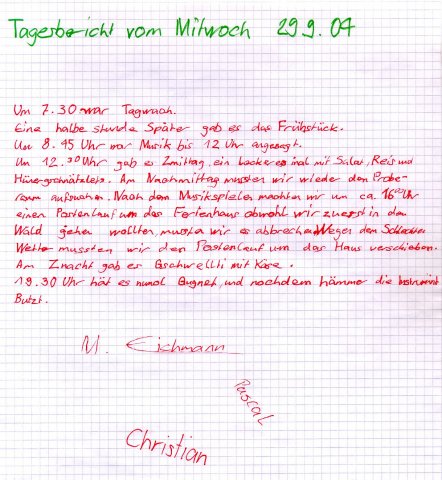 Tagesbericht vom Mitwoch 29.9.04
Um 7.30 war Tagwach.
Eine halbe stunde Später gab es das Frühstück.
Um 8.45 Uhr war Musik bis 12 Uhr angesagt.
Um 12.30 Uhr gab es Zmittag, ein leckeres mal mit Salat, Reis und
Hünergschnätzlets. Am Nachmittag mussten wir wieder den Probe-
raum aufsuchen. Nach dem Musikspielen machten wir um ca. 16 00 Uhr
einen Postenlauf um das Ferienhaus obwohl wir zuerst in den
Wald gehen wollten, mussten wir es abbrechen. Wegen dem Schlechten
Wetter mussten wir den Postenlauf um das Haus verschieben.
Am Znacht gab es Gschwellti mit Käse.
19.30 Uhr hät es numol Gugnet, und nochdem hämmer die Instrumänt
Butzt.
M. Eichmann
Pascal
Christian